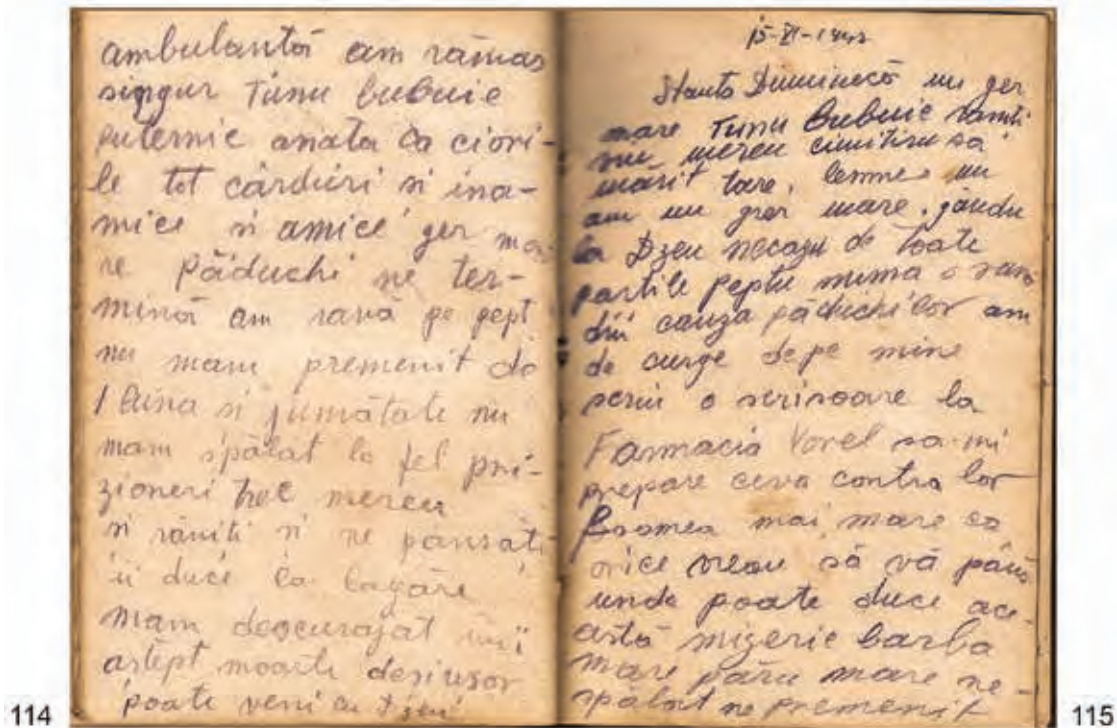 ambulantă am rămas
singur Tunu bubuie
puternic aviata ca ciori-
le tot cârduri si ina-
mice si amice ger ma-
re Păduchi ne ter-
mină am rană pe pept
nu mam premenit de
1 luna si jumătate nu
mam spălat la fel pri-
zioneri trec mereu
si răniti si ne pansati
ii duce la lagăre
mam descurajat imi
astept moarte desi usor
poate veni cu Dzeu
114
15-XI-1942
Duminecă un ger
mare Tunu bubuie raniti
mereu cimitiru sa
mărit tare, lemne nu
am un ger mare, gându
la Dzeu necazu de toate
partile peptu numa o rană
din cauza păduchilor am
de curge depe mine
scriu o scrisoare la
Farmacia Vorel sa-mi
prepare ceva contra lor
Foamea mai mare ca
orice vreau să vă până
unde poate duce ace-
astă mizerie barba
mare păru mare ne-
spălat ne premenit
115